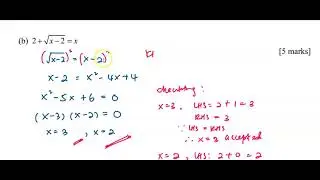 (b) 2 + √x−2 = x
[5 marks]
(√x−2)² = (x−2)²
K1
x − 2 = x² − 4x + 4
x² − 5x + 6 = 0
(x−3)(x−2) = 0
x = 3 , x = 2
checking:
x=3, LHS = 2 + 1 = 3
RHS = 3
∵ LHS = RHS
∴ x = 3 accepted
x = 2, LHS: 2 + 0 = 2